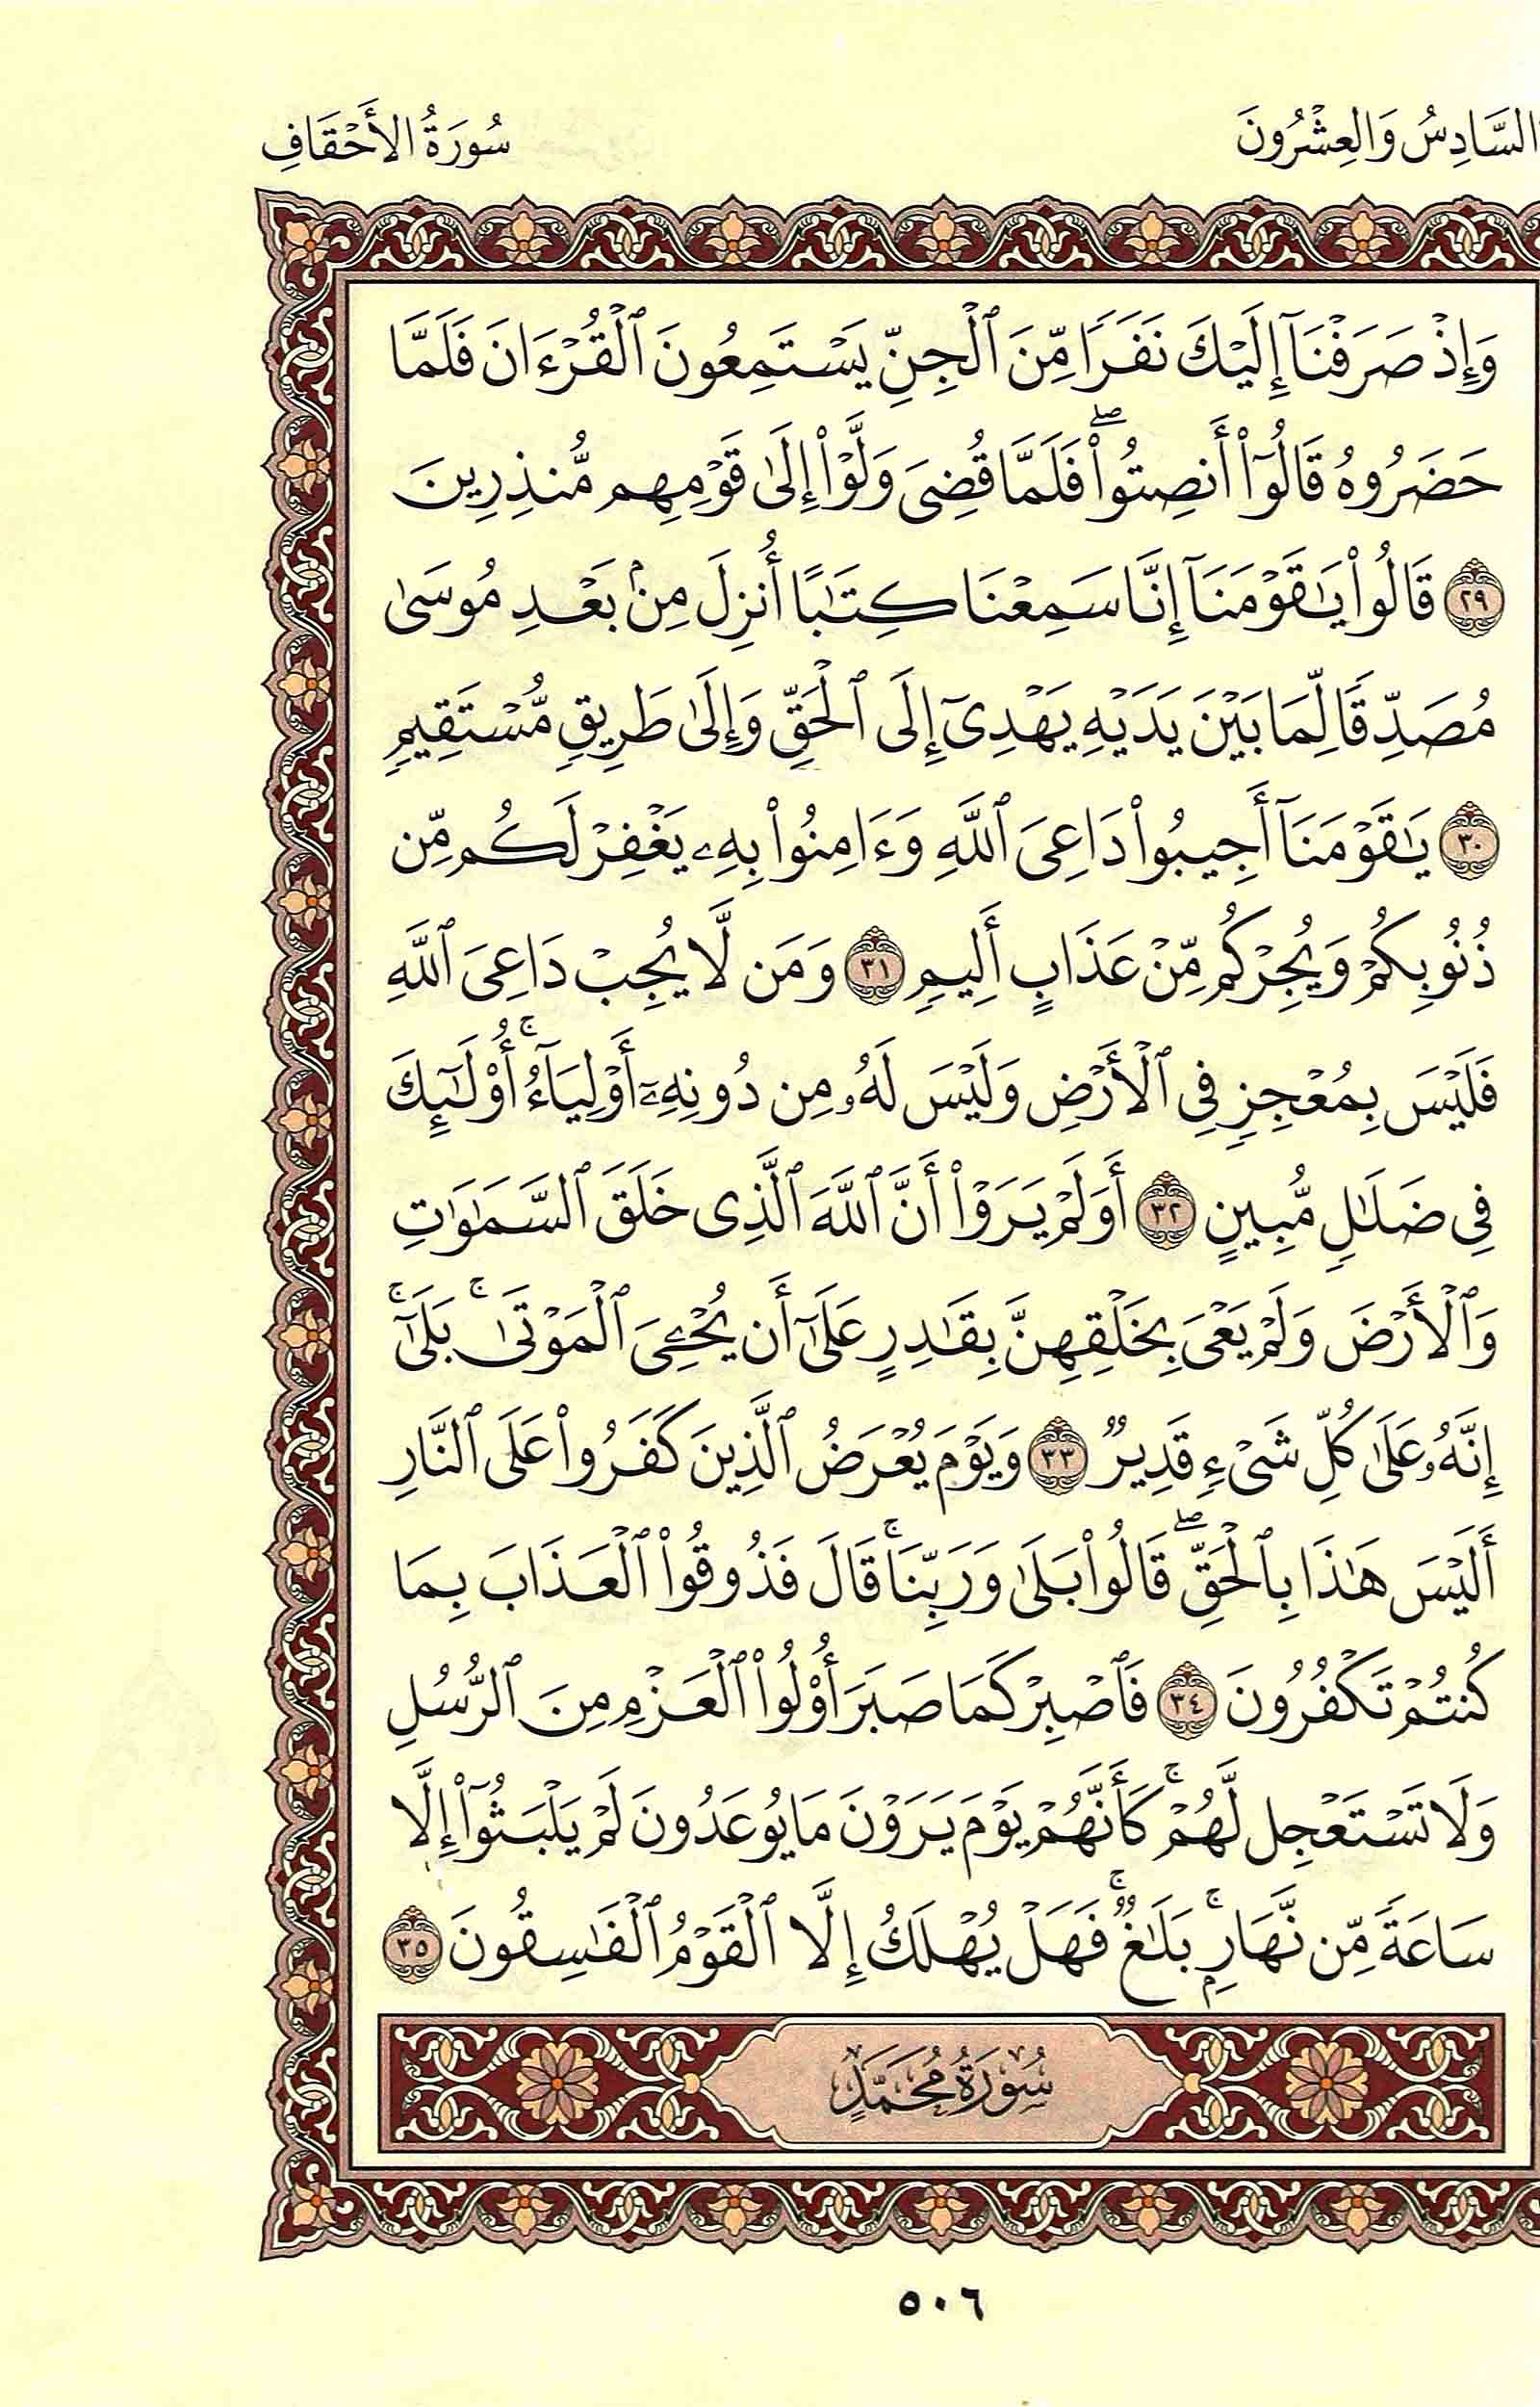 السَّادِسُ وَالعِشْرُونَ
سُورَةُ الأَحْقَافِ
وَإِذْ صَرَفْنَآ إِلَيْكَ نَفَرًا مِّنَ ٱلْجِنِّ يَسْتَمِعُونَ ٱلْقُرْءَانَ فَلَمَّا
حَضَرُوهُ قَالُوٓا۟ أَنصِتُوا۟ۖ فَلَمَّا قُضِىَ وَلَّوْا۟ إِلَىٰ قَوْمِهِم مُّنذِرِينَ
٢٩ قَالُوا۟ يَٰقَوْمَنَآ إِنَّا سَمِعْنَا كِتَٰبًا أُنزِلَ مِنۢ بَعْدِ مُوسَىٰ
مُصَدِّقًا لِّمَا بَيْنَ يَدَيْهِ يَهْدِىٓ إِلَى ٱلْحَقِّ وَإِلَىٰ طَرِيقٍ مُّسْتَقِيمٍ
٣٠ يَٰقَوْمَنَآ أَجِيبُوا۟ دَاعِىَ ٱللَّهِ وَءَامِنُوا۟ بِهِۦ يَغْفِرْ لَكُم مِّن
ذُنُوبِكُمْ وَيُجِرْكُم مِّنْ عَذَابٍ أَلِيمٍ ٣١ وَمَن لَّا يُجِبْ دَاعِىَ ٱللَّهِ
فَلَيْسَ بِمُعْجِزٍ فِى ٱلْأَرْضِ وَلَيْسَ لَهُۥ مِن دُونِهِۦٓ أَوْلِيَآءُۚ أُو۟لَٰٓئِكَ
فِى ضَلَٰلٍ مُّبِينٍ ٣٢ أَوَلَمْ يَرَوْا۟ أَنَّ ٱللَّهَ ٱلَّذِى خَلَقَ ٱلسَّمَٰوَٰتِ
وَٱلْأَرْضَ وَلَمْ يَعْىَ بِخَلْقِهِنَّ بِقَٰدِرٍ عَلَىٰٓ أَن يُحْۦِىَ ٱلْمَوْتَىٰۚ بَلَىٰٓۚ
إِنَّهُۥ عَلَىٰ كُلِّ شَىْءٍ قَدِيرٌ ٣٣ وَيَوْمَ يُعْرَضُ ٱلَّذِينَ كَفَرُوا۟ عَلَى ٱلنَّارِ
أَلَيْسَ هَٰذَا بِٱلْحَقِّۖ قَالُوا۟ بَلَىٰ وَرَبِّنَاۚ قَالَ فَذُوقُوا۟ ٱلْعَذَابَ بِمَا
كُنتُمْ تَكْفُرُونَ ٣٤ فَٱصْبِرْ كَمَا صَبَرَ أُو۟لُوا۟ ٱلْعَزْمِ مِنَ ٱلرُّسُلِ
وَلَا تَسْتَعْجِل لَّهُمْۚ كَأَنَّهُمْ يَوْمَ يَرَوْنَ مَا يُوعَدُونَ لَمْ يَلْبَثُوٓا۟ إِلَّا
سَاعَةً مِّن نَّهَارٍۭۚ بَلَٰغٌۚ فَهَلْ يُهْلَكُ إِلَّا ٱلْقَوْمُ ٱلْفَٰسِقُونَ ٣٥
سُورَةُ مُحَمَّدٍ
٥٠٦